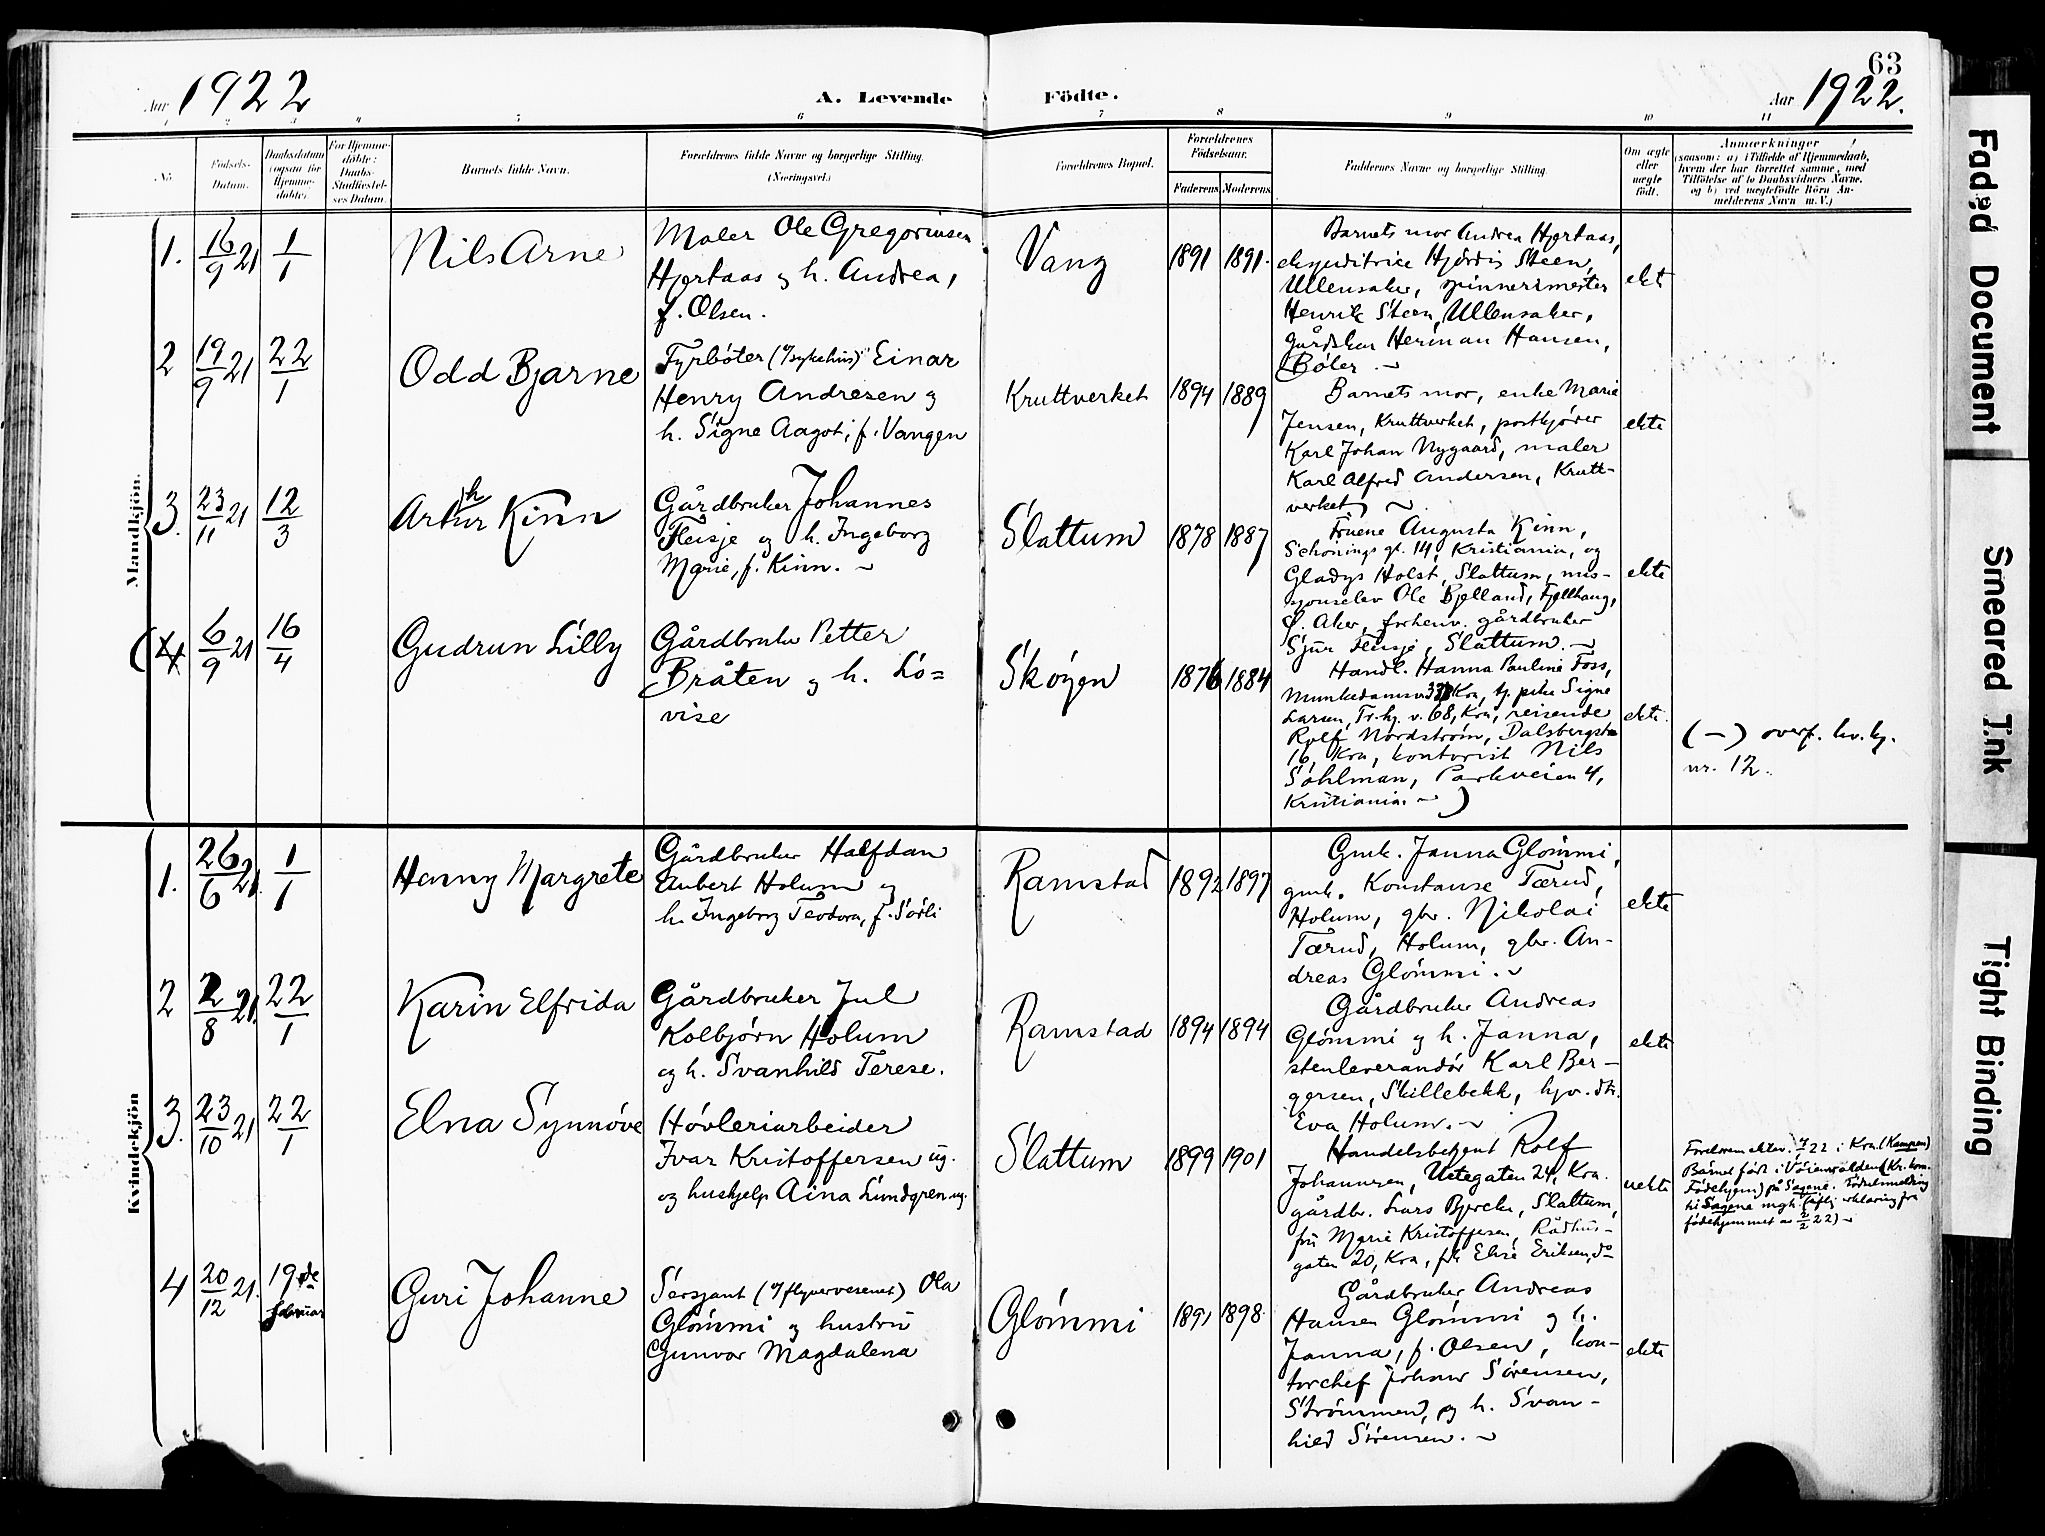 63
Aar 1922
A. Levende Födte.
Aar 1922.
1 2 3 4 5 6 7 8 9 10 11
No
Födsels-Datum.
Daabsdatum (ogsaa for Hjemme-döbte).
For Hjemme-döbte: Daabs-Stadfæstel-ses Datum.
Barnets fulde Navn.
Forældrenes fulde Navne og borgerlige Stilling. (Næringsvei.)
Forældrenes Bopæl.
Forældrenes Födselsaar.
Faderens Moderens
Faddernes Navne og borgerlige Stilling.
Om ægte eller uægte födt.
Anmærkninger
(saasom: a) i Tilfælde af Hjemmedaab,
hvem der har forrettet samme, med
Tilföielse af to Daabsvidners Navne,
og b) ved uægtefödte Börn An-
melderens Navn m. V.)
Mandkjön.
1. 16/9 21 1/1
Nils Arne
Maler Ole Gregoriusen
Hjertaas og h. Andrea,
f. Olsen.
Vang
1891 1891.
Barnets mor Andrea Hjertaas,
ekspeditrice Hjørdis Steen,
Ullensaker, spinnerimester
Henrik Steen, Ullensaker,
gårdsbr. Herman Hansen,
Bøler.
ekt
2 19/9 21 22/1
Odd Bjarne
Fyrbøter (v/sykehus) Einar
Henry Andresen og
h. Signe Aagot, f. Vangen
Kruttverket
1894 1889
Barnets mor, enke Marie
Jensen, Kruttverket, postkjører
Karl Johan Nygaard, maler
Karl Alfred Andersen, Krutt-
verket
ekte
3. 23/11 21 12/3
Arthur Kinn
Gårdbruker Johannes
Fleisje og h. Ingeborg
Marie, f. Kinn.
Slattum
1878 1887
Fruene Augusta Kinn,
Schønings gt. 14, Kristiania, og
Gladys Holst, Slattum, mis-
sjonselev Ole Bjelland, Fjellhaug,
Ø. Aker, forhenv. gårdbruker
Sjur Fleisje, Slattum.
ekte
(4 6/9 21 16/4
Gudrun Lilly
Gårdbruker Petter
Bråten og h. Lo=
vise
Skøyen
1876 1884
Handl. Hanna Pauline Foss,
Munkedamsvd, Kra, tj. pike Signe
Larsen, Tr.hj. v. 68, Kra, reisende
Rolf Nordstrøm, Dalsbergst
16, Kra, kontorist Nils
Sahlman, Parkveien 4,
Kristiania. )
ekte
(—) overf. kv.kj.
nr. 12.
Kvindekjön
1. 26/6 21. 1/1
Hanny Margrete
Gårdbruker Halfdan
Aubert Holum og
h. Ingeborg Teodora, f. Sørli
Ramstad
1892 1897
Gmk. Janna Glømmi,
gmk. Konstanse Tærud,
Holum, gbr. Nikolai
Tærud, Holum, gbr. An-
dreas Glømmi.
ekte
2 2/8 21. 22/1
Karin Elfrida
Gårdbruker Jul
Kolbjørn Holum
og h. Svanhild Terese.
Ramstad
1894 1894
Gårdbruker Andreas
Glømmi og h. Janna,
stenleverandør Karl Ber-
gersen, Skillebekk, hjv. dtr.
Eva Holum.
ekte
3. 23/10 21 22/1
Elna Synnøve
Høvleriarbeider
Ivar Kristoffersen ug.
og hushjelp Aina Lundgren ug.
Slattum
1899 1901
Handelsbetjent Rolf
Johannesen, Uetegaten 24, Kra.
gårdbr. Lars Bjercke, Slattum,
fru Marie Kristoffersen, Rådhus-
gaten 20, Kra, frk Elise Eriksen, do
uekte
Foreldrene ektev. 22 i Kra. (Kampen)
Barnet født i Vøienvolden (Kr. kom.
Fødehjem) på Sagene. Fødselsmelding
til Sagene mgk. (ifølg. erklæring fra
fødehjemmet av 2/2 22)
4 20/12 21. 19de februar
Guri Johanne
Sersjant (v/flyvervesenet) Ola
Glømmi og hustru
Gunvor Magdalena
Glømmi
1891 1898.
Gårdbruker Andreas
Hansen Glømmi og h.
Janna, f. Olsen, kon-
torchef Johnar Sørensen,
Strømmen, og h. Svan-
hild Sørensen.
ekte
Faded Document
Smeared Ink
Tight Binding